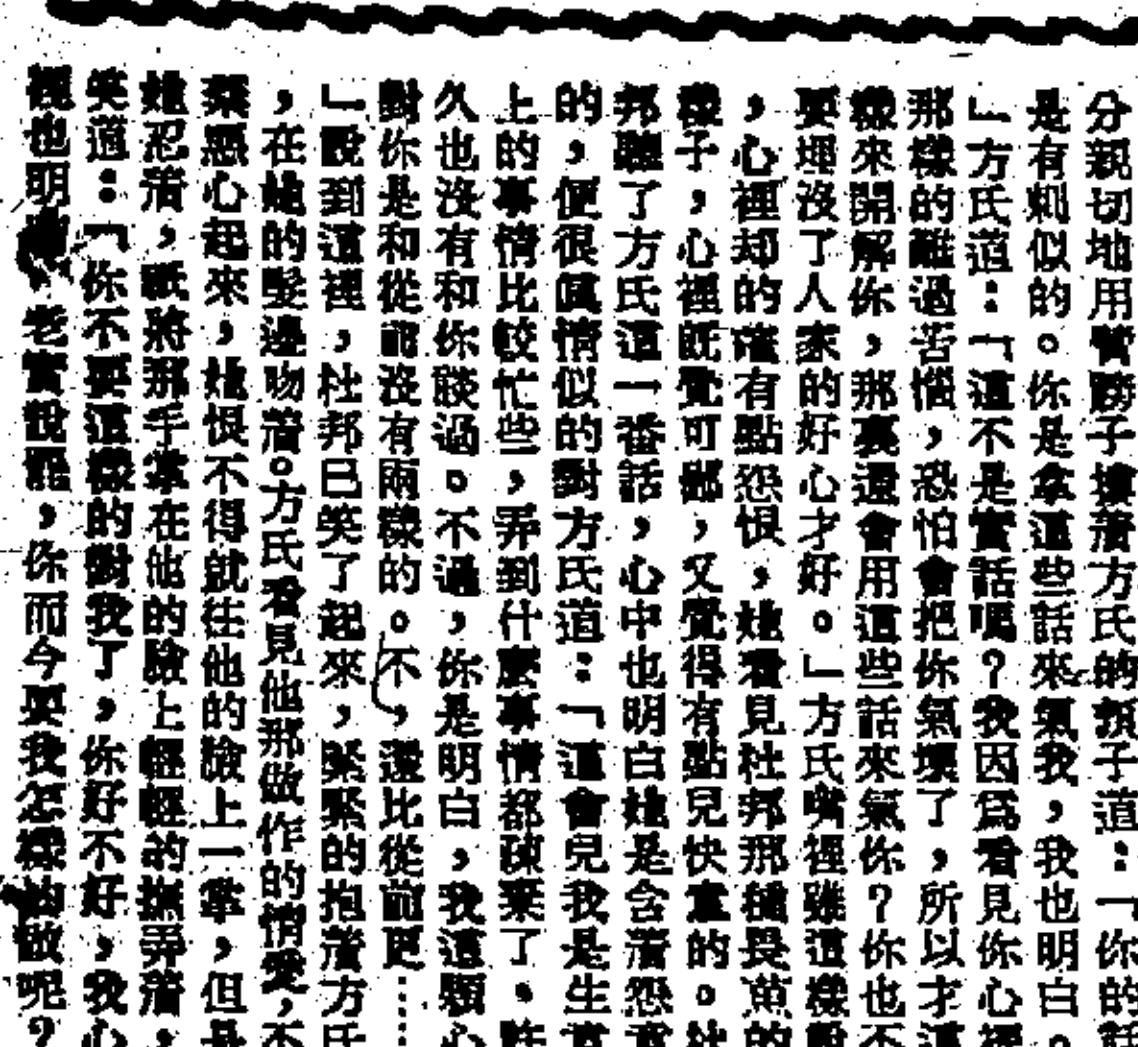 分親切地用臂膀子摟着方氏的頸子道：「你的話
是有刺似的。你是拿這些話來氣我，我也明白。
」方氏道：「這不是實話嗎？我因爲看見你心裡
那樣的難過苦惱，恐怕會把你氣壞了，所以才這
樣來開解你，那裏還會用這些話來氣你？你也不
要埋沒了人家的好心才好。」方氏嘴裡雖這樣說
，心裡却的確有點怨恨，她看見杜邦那種畏葸的
樣子，心裡既覺可鄙，又覺得有點兒快意的。杜
邦聽了方氏這一番話，心中也明白她是含着怨意
的，便很含情似的對方氏道：「這會兒我是生意
上的事情比較忙些，弄到什麼事情都疎棄了。許
久也沒有和你談過。不過，你是明白，我這顆心
對你是和從前沒有兩樣的。不，還比從前更……
」說到這裡，杜邦已笑了起來，緊緊的抱着方氏
，在她的髮邊吻着。方氏看見他那做作的情愛，不
棄惡心起來，她恨不得就往他的臉上一掌，但是
她忍着，祇將那手掌在他的臉上輕輕的撫弄着，
笑道：「你不要這樣的對我了，你好不好，我心
裡也明，老實說罷，你而今要我怎樣做呢？